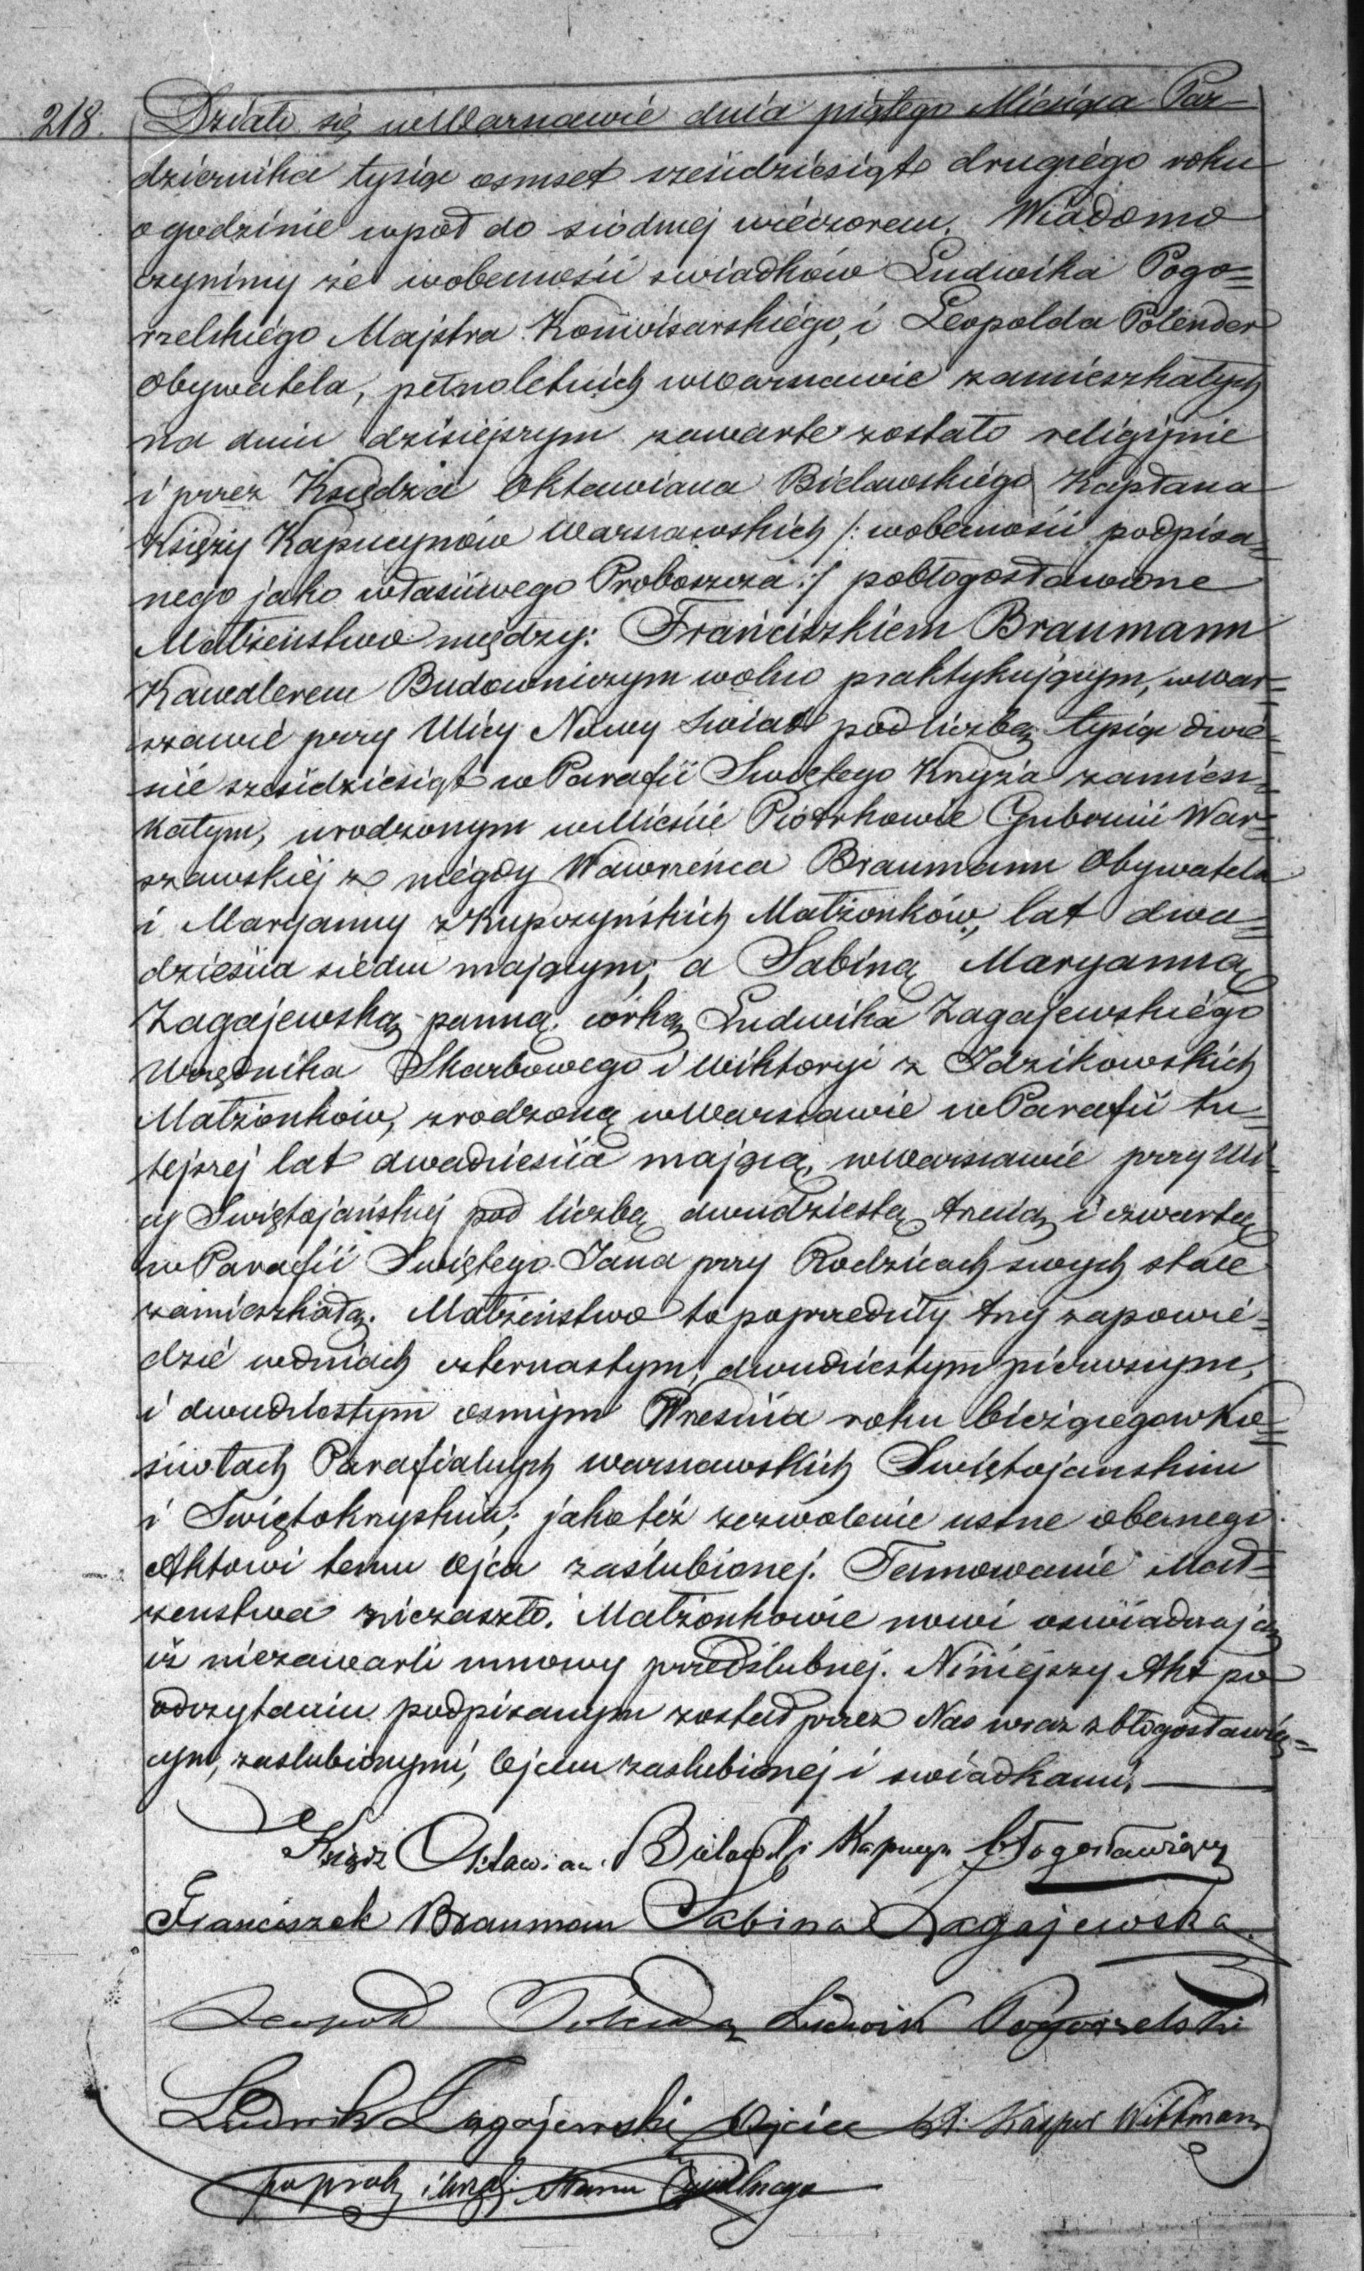 218. Działo się w Warszawie dnia piątego Miesiąca Paz-
dziernika tysiąc osmset sześćdziesiąt drugiego roku
o godzinie wpół do siódmej wieczorem. Wiadomo
czynimy że wobecności swiadków Ludwika Pogo=
rzelskiego Majstra Konwisarskiego, i Leopolda Polender
Obywatela, pełnoletnich w Warszawie zamieszkałych
na dniu dzisiejszym zawarte zostało religijnie
i przez Księdza Oktawiana Bielawskiego Kapłana
Księży Kapucynów Warszawskich /: wobecności podpisa=
nego jako właściwego Proboszcza :/ pobłogosławione
Małżeństwo między: Franciszkiem Braumann
Kawalerem Budowniczym wolno praktykującym, w War=
szawie przy Ulicy Nowy Swiat pod liczbą tysiąc dwie=
ście sześćdziesiąt w Parafii Swiętego Krzyża zamiesz=
kałym, urodzonym w Mieście Piotrkowie Gubernii War=
szawskiej z niegdy Wawrzeńca Braumann Obywatela
i Maryanny z Kupczyńskich Małżonków, lat dwa=
dzieścia siedm mającym; a Sabiną Maryanną
Zagajewską panną, córką Ludwika Zagajewskiego
Urzędnika Skarbowego i Wiktoryi z Idzikowskich
Małżonków, zrodzoną w Warszawie w Parafii tu=
tejszej lat dwadzieścia mającą, w Warszawie przy Uli=
cy Swiętojańskiej pod liczbą dwudziestą trzecią i czwartą
w Parafii Swiętego Jana przy Rodzicach swych stale
zamieszkałą. Małżeństwo to poprzedziły trzy zapowie=
dzie w dniach czternastym, dwudziestym pierwszym,
i dwudziestym osmym Września roku bieżącego w Ko=
ściołach Parafialnych warszawskich Swiętojanskim
i Swiętokrzyskim; jakoteż zezwolenie ustne obecnego
Aktowi temu Ojca zaślubionej. Tamowanie Mał=
żenstwa niezaszło. Małżonkowie nowi oświadczają
iż niezawarli umowy przedślubnej. Niniejszy Akt po
odczytaniu podpisanym został przez Nas wraz z błogosławią=
cym, zaslubionymi, Ojcem zaslubionej i swiadkami.
Ksiądz Oktawian Bielawski Kapucyn błogosławiący
Franciszek Braumann Sabina Zagajewska.
Leopold Polender Ludwik Pogorzelski
Ludwik Zagajewski Ojciec X. Kasper Wittmann
Stanu Cywilnego